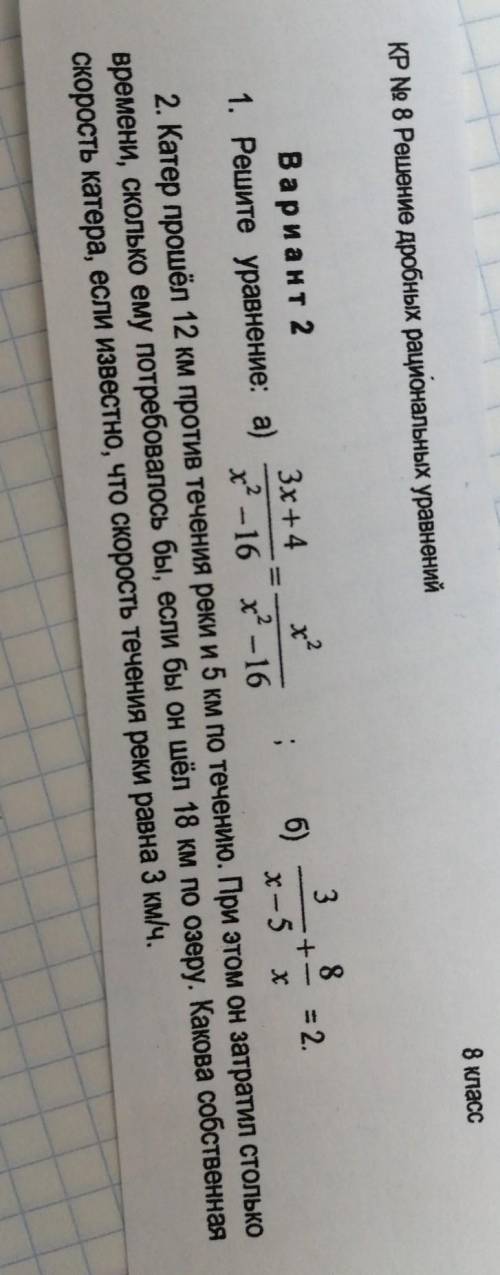 КР № 8 Решение дробных рациональных уравнений 8 класс
Вариант 2
1. Решите уравнение: а) (3x + 4)/(x² – 16) = x²/(x² – 16) ; б) 3/(x – 5) + 8/x = 2.
2. Катер прошёл 12 км против течения реки и 5 км по течению. При этом он затратил столько
времени, сколько ему потребовалось бы, если бы он шёл 18 км по озеру. Какова собственная
скорость катера, если известно, что скорость течения реки равна 3 км/ч.